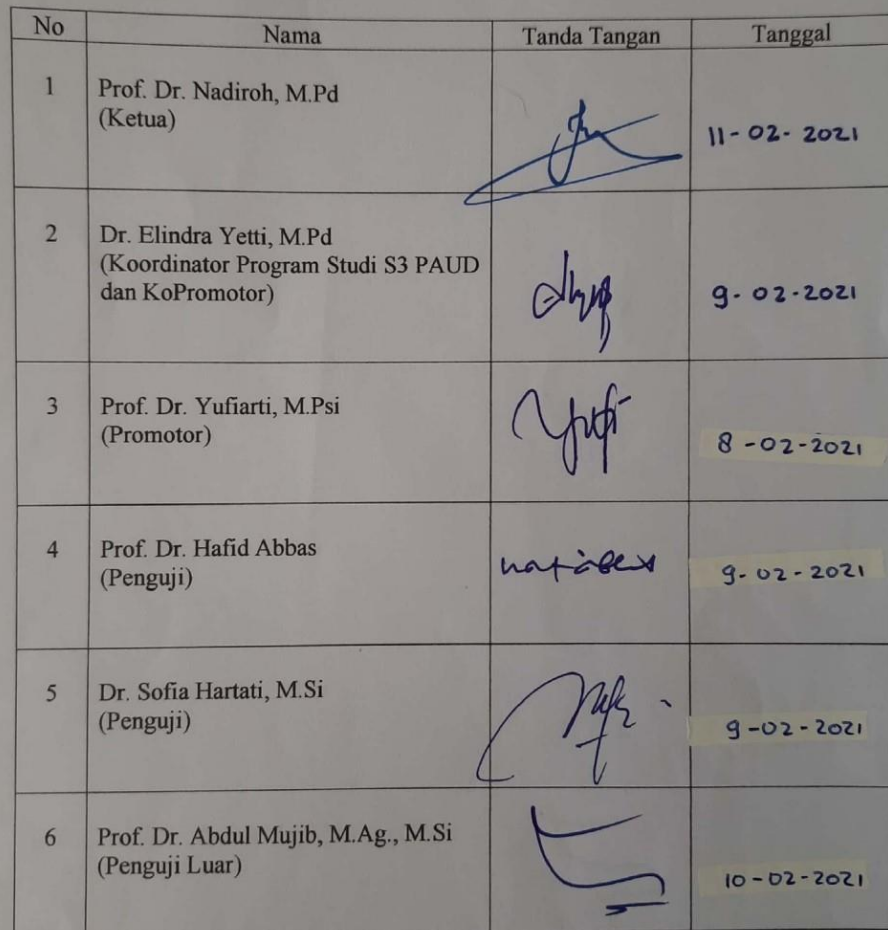 No Nama Tanda Tangan Tanggal
1 Prof. Dr. Nadiroh, M.Pd
(Ketua)
11-02-2021
2 Dr. Elindra Yetti, M.Pd
(Koordinator Program Studi S3 PAUD
dan KoPromotor)
9-02-2021
3 Prof. Dr. Yufiarti, M.Psi
(Promotor)
8-02-2021
4 Prof. Dr. Hafid Abbas
(Penguji)
9-02-2021
5 Dr. Sofia Hartati, M.Si
(Penguji)
9-02-2021
6 Prof. Dr. Abdul Mujib, M.Ag., M.Si
(Penguji Luar)
10-02-2021